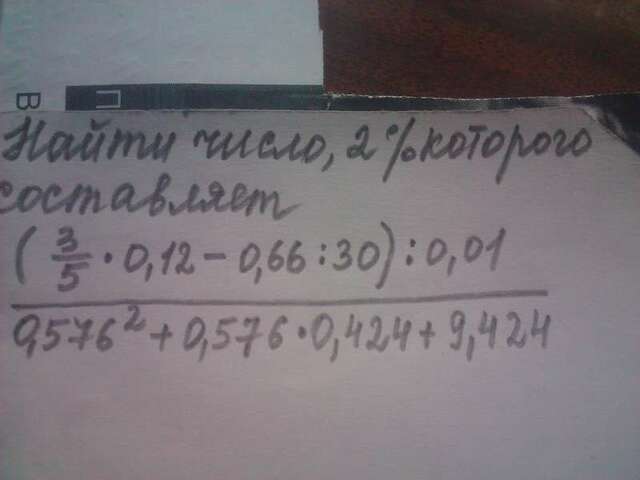 В П
Найти число, 2% которого
составляет
(3/5 · 0,12 - 0,66 : 30) : 0,01
0,576² + 0,576 · 0,424 + 9,424